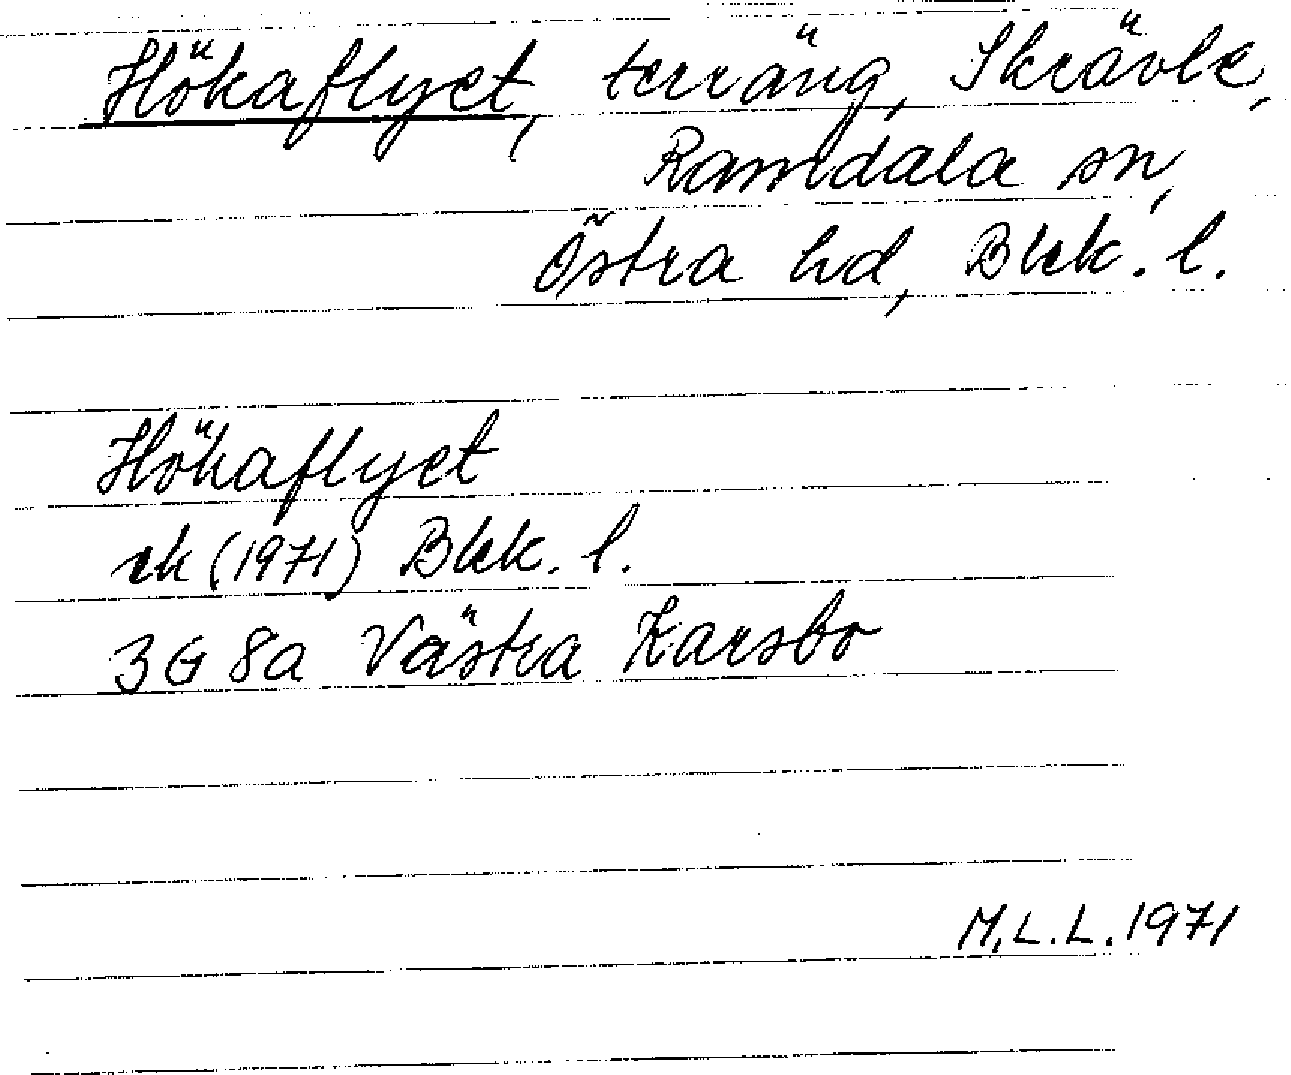 Hökaflyet, terräng, Skrävle,
Ramdala sn,
Östra hd, Blek. l.
Hökaflyet
ek (1971) Blek. l.
3G 8a Västra Karsbo
M.L.L. 1971